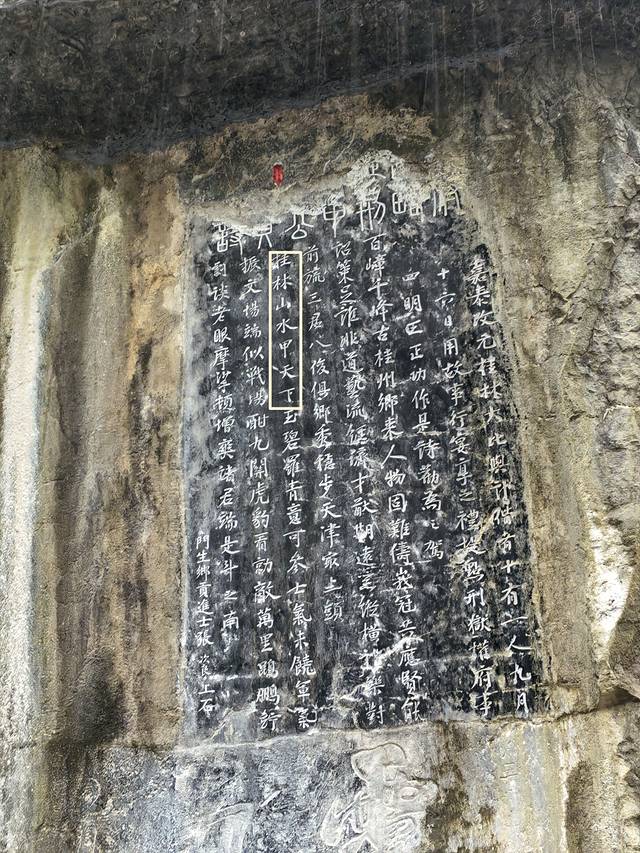 嘉泰改元桂林大比與計偕者十有一人九月
十六日用故事行宴享之禮提點刑獄權府事
四明王正功作是詩勸爲之駕
百嶂千峰古桂州鄉來人物固難儔峩冠共應賢能
詔策足誰非道藝流經濟才猷期遠器縱橫禮樂對
前旒三君八俊俱鄉秀穩步天津最上頭
桂林山水甲天下玉碧羅青意可參士氣未饒軍氣
振文場端似戰場酣九關虎豹看勍敵萬里鵾鵬竚
劇談老眼摩挲頓增爽諸君端是斗之南
門生鄉貢進士張次良上石